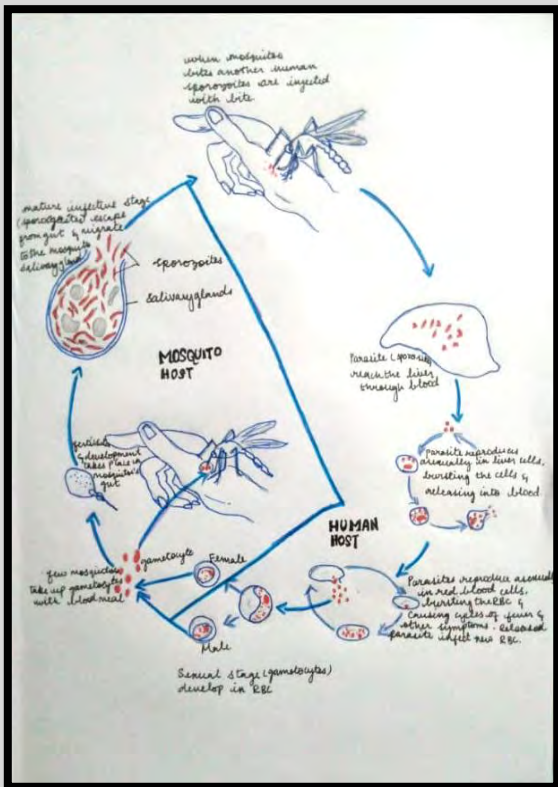 when mosquitos
bites another human
sporozoites are injected
with bite.
mature infective stage
(sporozoites) escape
from gut & migrate
to the mosquito
salivary gland
sporozoites
salivary glands
MOSQUITO
HOST
Parasite
reach the liver
through blood
Parasite reproduces
asexually in liver cells,
bursting the cells &
releasing into blood
& development
takes place in
mosquito's
gut
HUMAN
HOST
gametocyte
Female
mosquitoes
take up gametocytes
with blood meal
Male
Parasites reproduce
in red blood cells,
bursting the RBC &
causing cycles of fever &
other symptoms. Released
parasite infect new RBC.
Sexual stage (gametocytes)
develop in RBC